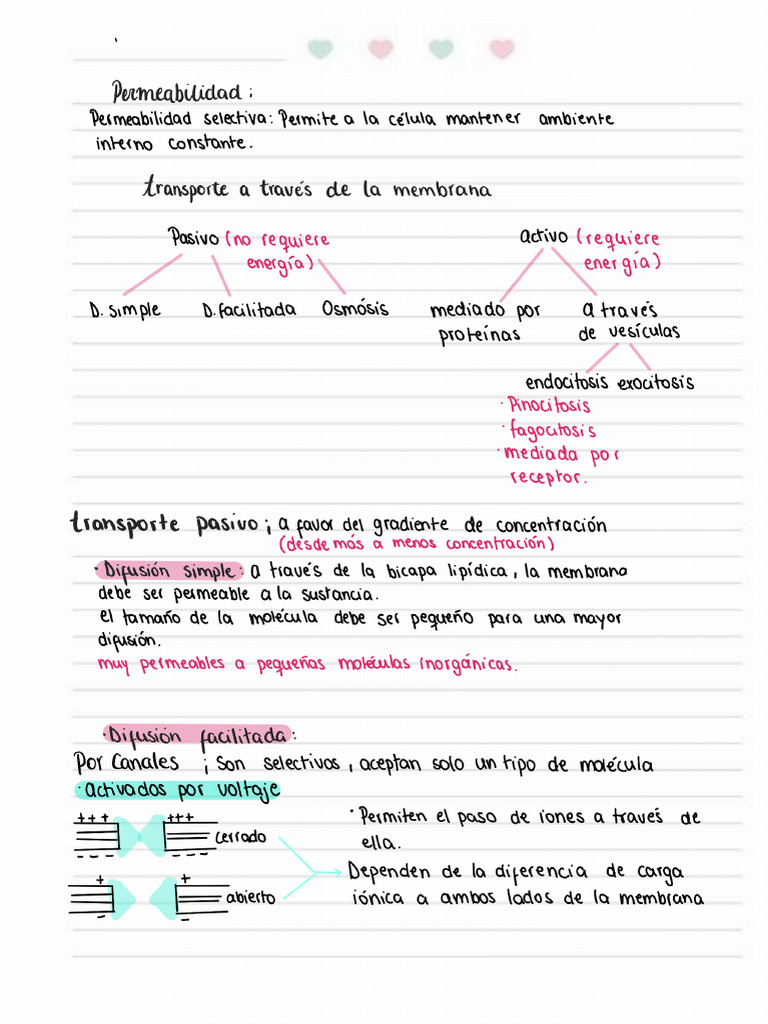 Permeabilidad:
Permeabilidad selectiva: Permite a la célula mantener ambiente
interno constante.
transporte a través de la membrana
Pasivo (no requiere
energía)
D. simple D. facilitada Osmósis
activo (requiere
energía)
mediado por
proteínas
a través
de vesículas
endocitosis exocitosis
· Pinocitosis
· fagocitosis
· mediada por
receptor.
transporte pasivo ¡ a favor del gradiente de concentración
(desde más a menos concentración)
· Difusión simple: a través de la bicapa lipídica, la membrana
debe ser permeable a la sustancia.
el tamaño de la molécula debe ser pequeño para una mayor
difusión.
muy permeables a pequeñas moléculas inorgánicas.
· Difusión facilitada:
Por Canales ¡ Son selectivos, aceptan solo un tipo de molécula
· activados por voltaje
+++ +++
cerrado
- - - - - - -
+ +
abierto
- -
· Permiten el paso de iones a través de
ella.
Dependen de la diferencia de carga
iónica a ambos lados de la membrana